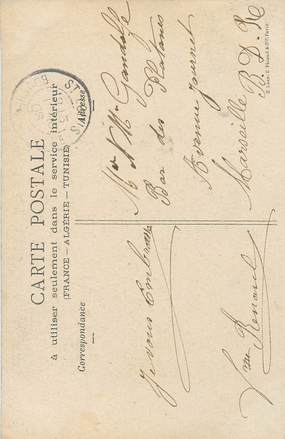 CARTE POSTALE
à utiliser seulement dans le service intérieur
(FRANCE - ALGÉRIE - TUNISIE)
Correspondance
Adresse
Je vous embrasse
Vve Renard
Mr & Mme Gandolfe
Bar des Platanes
Avenue Journet
Marseille B. D. R